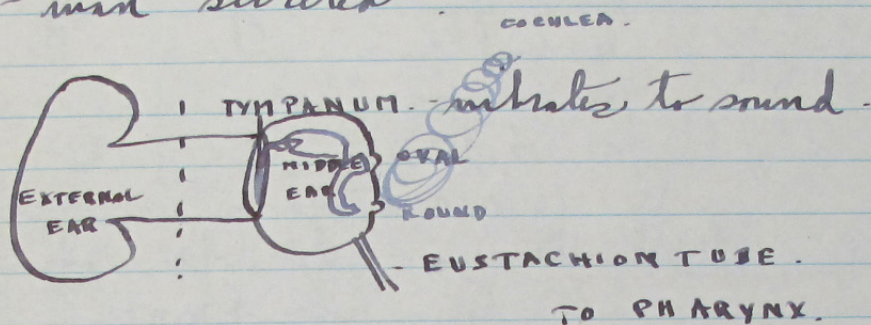 man
COCHLEA.
TYMPANUM. - vibrates to sound -
MIDDLE
EAR
OVAL
EXTERNAL
EAR
ROUND
- EUSTACHION TUBE.
TO PHARYNX.